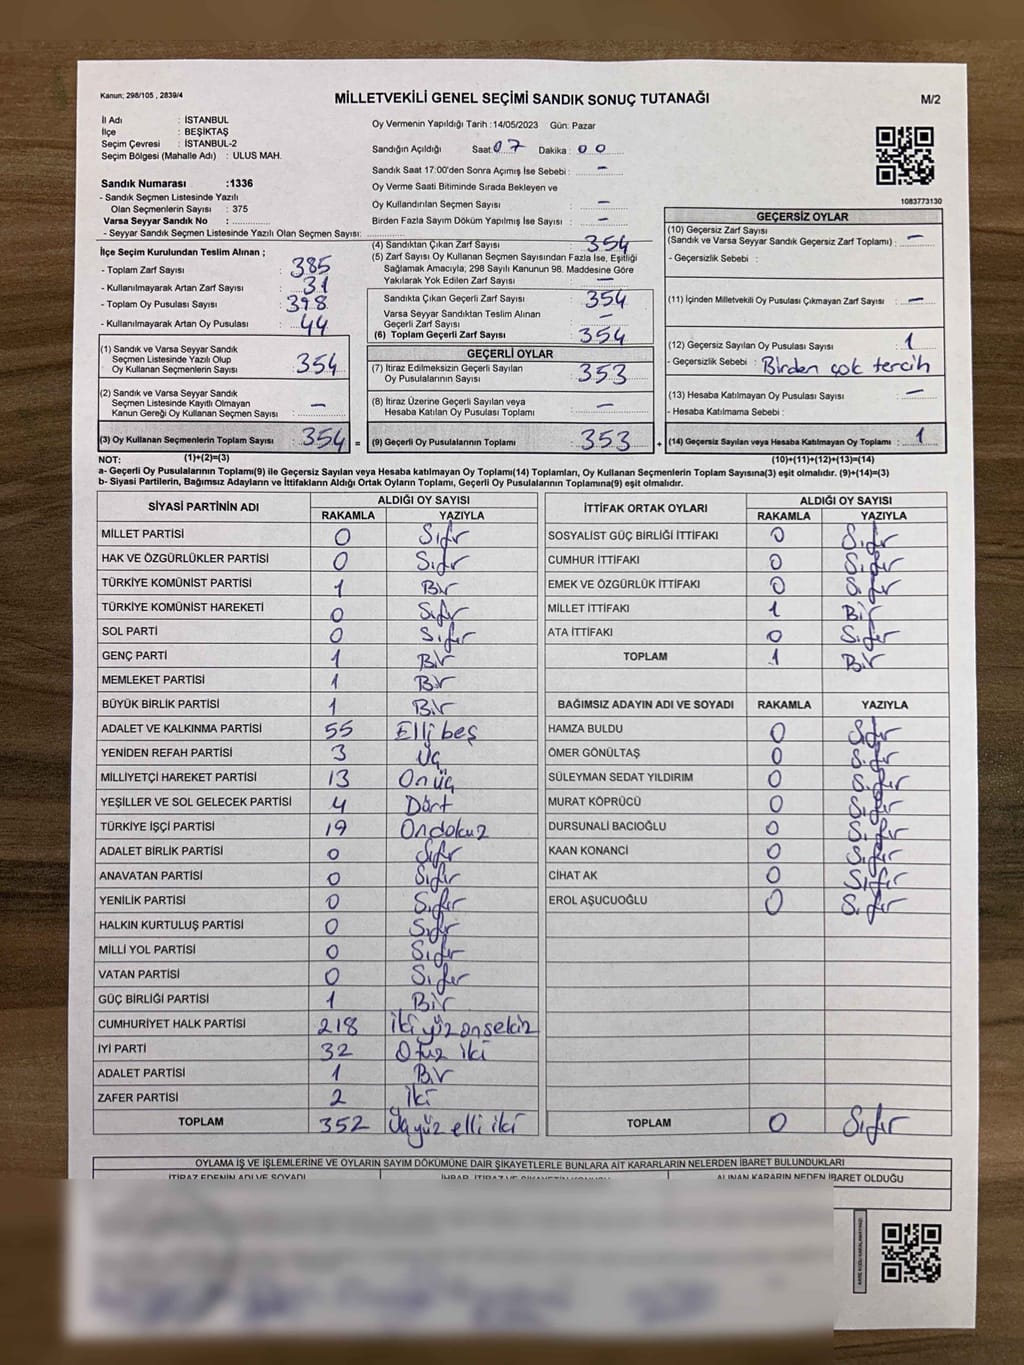 Kanun; 298/105 , 2839/4
MİLLETVEKİLİ GENEL SEÇİMİ SANDIK SONUÇ TUTANAĞI
M/2
İl Adı : İSTANBUL
İlçe : BEŞİKTAŞ
Seçim Çevresi : İSTANBUL-2
Seçim Bölgesi (Mahalle Adı) : ULUS MAH.
Sandık Numarası :1336
- Sandık Seçmen Listesinde Yazılı
Olan Seçmenlerin Sayısı : 375
Varsa Seyyar Sandık No :
- Seyyar Sandık Seçmen Listesinde Yazılı Olan Seçmen Sayısı:
Oy Vermenin Yapıldığı Tarih :14/05/2023 Gün: Pazar
Sandığın Açıldığı Saat: 07 Dakika : 00
Sandık Saat 17:00'den Sonra Açımış İse Sebebi : –
Oy Verme Saati Bitiminde Sırada Bekleyen ve
Oy Kullandırılan Seçmen Sayısı : –
Birden Fazla Sayım Döküm Yapılmış İse Sayısı : –
1083773130
İlçe Seçim Kurulundan Teslim Alınan ;
- Toplam Zarf Sayısı : 385
- Kullanılmayarak Artan Zarf Sayısı : 31
- Toplam Oy Pusulası Sayısı : 398
- Kullanılmayarak Artan Oy Pusulası : 44
(1) Sandık ve Varsa Seyyar Sandık
Seçmen Listesinde Yazılı Olup
Oy Kullanan Seçmenlerin Sayısı : 354
(2) Sandık ve Varsa Seyyar Sandık
Seçmen Listesinde Kayıtlı Olmayan
Kanun Gereği Oy Kullanan Seçmen Sayısı : –
(3) Oy Kullanan Seçmenlerin Toplam Sayısı : 354 =
(4) Sandıktan Çıkan Zarf Sayısı : 354
(5) Zarf Sayısı Oy Kullanan Seçmen Sayısından Fazla İse, Eşitliği
Sağlamak Amacıyla, 298 Sayılı Kanunun 98. Maddesine Göre
Yakılarak Yok Edilen Zarf Sayısı : –
Sandıkta Çıkan Geçerli Zarf Sayısı : 354
Varsa Seyyar Sandıktan Teslim Alınan
Geçerli Zarf Sayısı : –
(6) Toplam Geçerli Zarf Sayısı : 354
GEÇERLİ OYLAR
(7) İtiraz Edilmeksizin Geçerli Sayılan
Oy Pusulalarının Sayısı : 353
(8) İtiraz Üzerine Geçerli Sayılan veya
Hesaba Katılan Oy Pusulası Toplamı : –
(9) Geçerli Oy Pusulalarının Toplamı : 353 +
GEÇERSİZ OYLAR
(10) Geçersiz Zarf Sayısı
(Sandık ve Varsa Seyyar Sandık Geçersiz Zarf Toplamı) : –
- Geçersizlik Sebebi :
(11) İçinden Milletvekili Oy Pusulası Çıkmayan Zarf Sayısı : –
(12) Geçersiz Sayılan Oy Pusulası Sayısı : 1
- Geçersizlik Sebebi : Birden çok tercih
(13) Hesaba Katılmayan Oy Pusulası Sayısı : –
- Hesaba Katılmama Sebebi :
(14) Geçersiz Sayılan veya Hesaba Katılmayan Oy Toplamı : 1
NOT: (1)+(2)=(3)
(10)+(11)+(12)+(13)=(14)
a- Geçerli Oy Pusulalarının Toplamı(9) ile Geçersiz Sayılan veya Hesaba katılmayan Oy Toplamı(14) Toplamları, Oy Kullanan Seçmenlerin Toplam Sayısına(3) eşit olmalıdır. (9)+(14)=(3)
b- Siyasi Partilerin, Bağımsız Adayların ve İttifakların Aldığı Ortak Oyların Toplamı, Geçerli Oy Pusulalarının Toplamına(9) eşit olmalıdır.
SİYASİ PARTİNİN ADI ALDIĞI OY SAYISI
RAKAMLA YAZIYLA
MİLLET PARTİSİ 0 Sıfır
HAK VE ÖZGÜRLÜKLER PARTİSİ 0 Sıfır
TÜRKİYE KOMÜNİST PARTİSİ 1 Bir
TÜRKİYE KOMÜNİST HAREKETİ 0 Sıfır
SOL PARTİ 0 Sıfır
GENÇ PARTİ 1 Bir
MEMLEKET PARTİSİ 1 Bir
BÜYÜK BİRLİK PARTİSİ 1 Bir
ADALET VE KALKINMA PARTİSİ 55 Elli beş
YENİDEN REFAH PARTİSİ 3 Üç
MİLLİYETÇİ HAREKET PARTİSİ 13 Onüç
YEŞİLLER VE SOL GELECEK PARTİSİ 4 Dört
TÜRKİYE İŞÇİ PARTİSİ 19 Ondokuz
ADALET BİRLİK PARTİSİ 0 Sıfır
ANAVATAN PARTİSİ 0 Sıfır
YENİLİK PARTİSİ 0 Sıfır
HALKIN KURTULUŞ PARTİSİ 0 Sıfır
MİLLİ YOL PARTİSİ 0 Sıfır
VATAN PARTİSİ 0 Sıfır
GÜÇ BİRLİĞİ PARTİSİ 1 Bir
CUMHURİYET HALK PARTİSİ 218 İki yüz onsekiz
İYİ PARTİ 32 Otuz iki
ADALET PARTİSİ 1 Bir
ZAFER PARTİSİ 2 İki
TOPLAM 352 Üçyüz elli iki
İTTİFAK ORTAK OYLARI ALDIĞI OY SAYISI
RAKAMLA YAZIYLA
SOSYALİST GÜÇ BİRLİĞİ İTTİFAKI 0 Sıfır
CUMHUR İTTİFAKI 0 Sıfır
EMEK VE ÖZGÜRLÜK İTTİFAKI 0 Sıfır
MİLLET İTTİFAKI 1 Bir
ATA İTTİFAKI 0 Sıfır
TOPLAM 1 Bir
BAĞIMSIZ ADAYIN ADI VE SOYADI RAKAMLA YAZIYLA
HAMZA BULDU 0 Sıfır
ÖMER GÖNÜLTAŞ 0 Sıfır
SÜLEYMAN SEDAT YILDIRIM 0 Sıfır
MURAT KÖPRÜCÜ 0 Sıfır
DURSUNALİ BACIOĞLU 0 Sıfır
KAAN KONANCİ 0 Sıfır
CİHAT AK 0 Sıfır
EROL AŞUCUOĞLU 0 Sıfır
TOPLAM 0 Sıfır
OYLAMA İŞ VE İŞLEMLERİNE VE OYLARIN SAYIM DÖKÜMÜNE DAİR ŞİKAYETLERLE BUNLARA AİT KARARLARIN NELERDEN İBARET BULUNDUKLARI
İTİRAZ EDENİN ADI VE SOYADI
ALINAN KARARIN NEDEN İBARET OLDUĞU